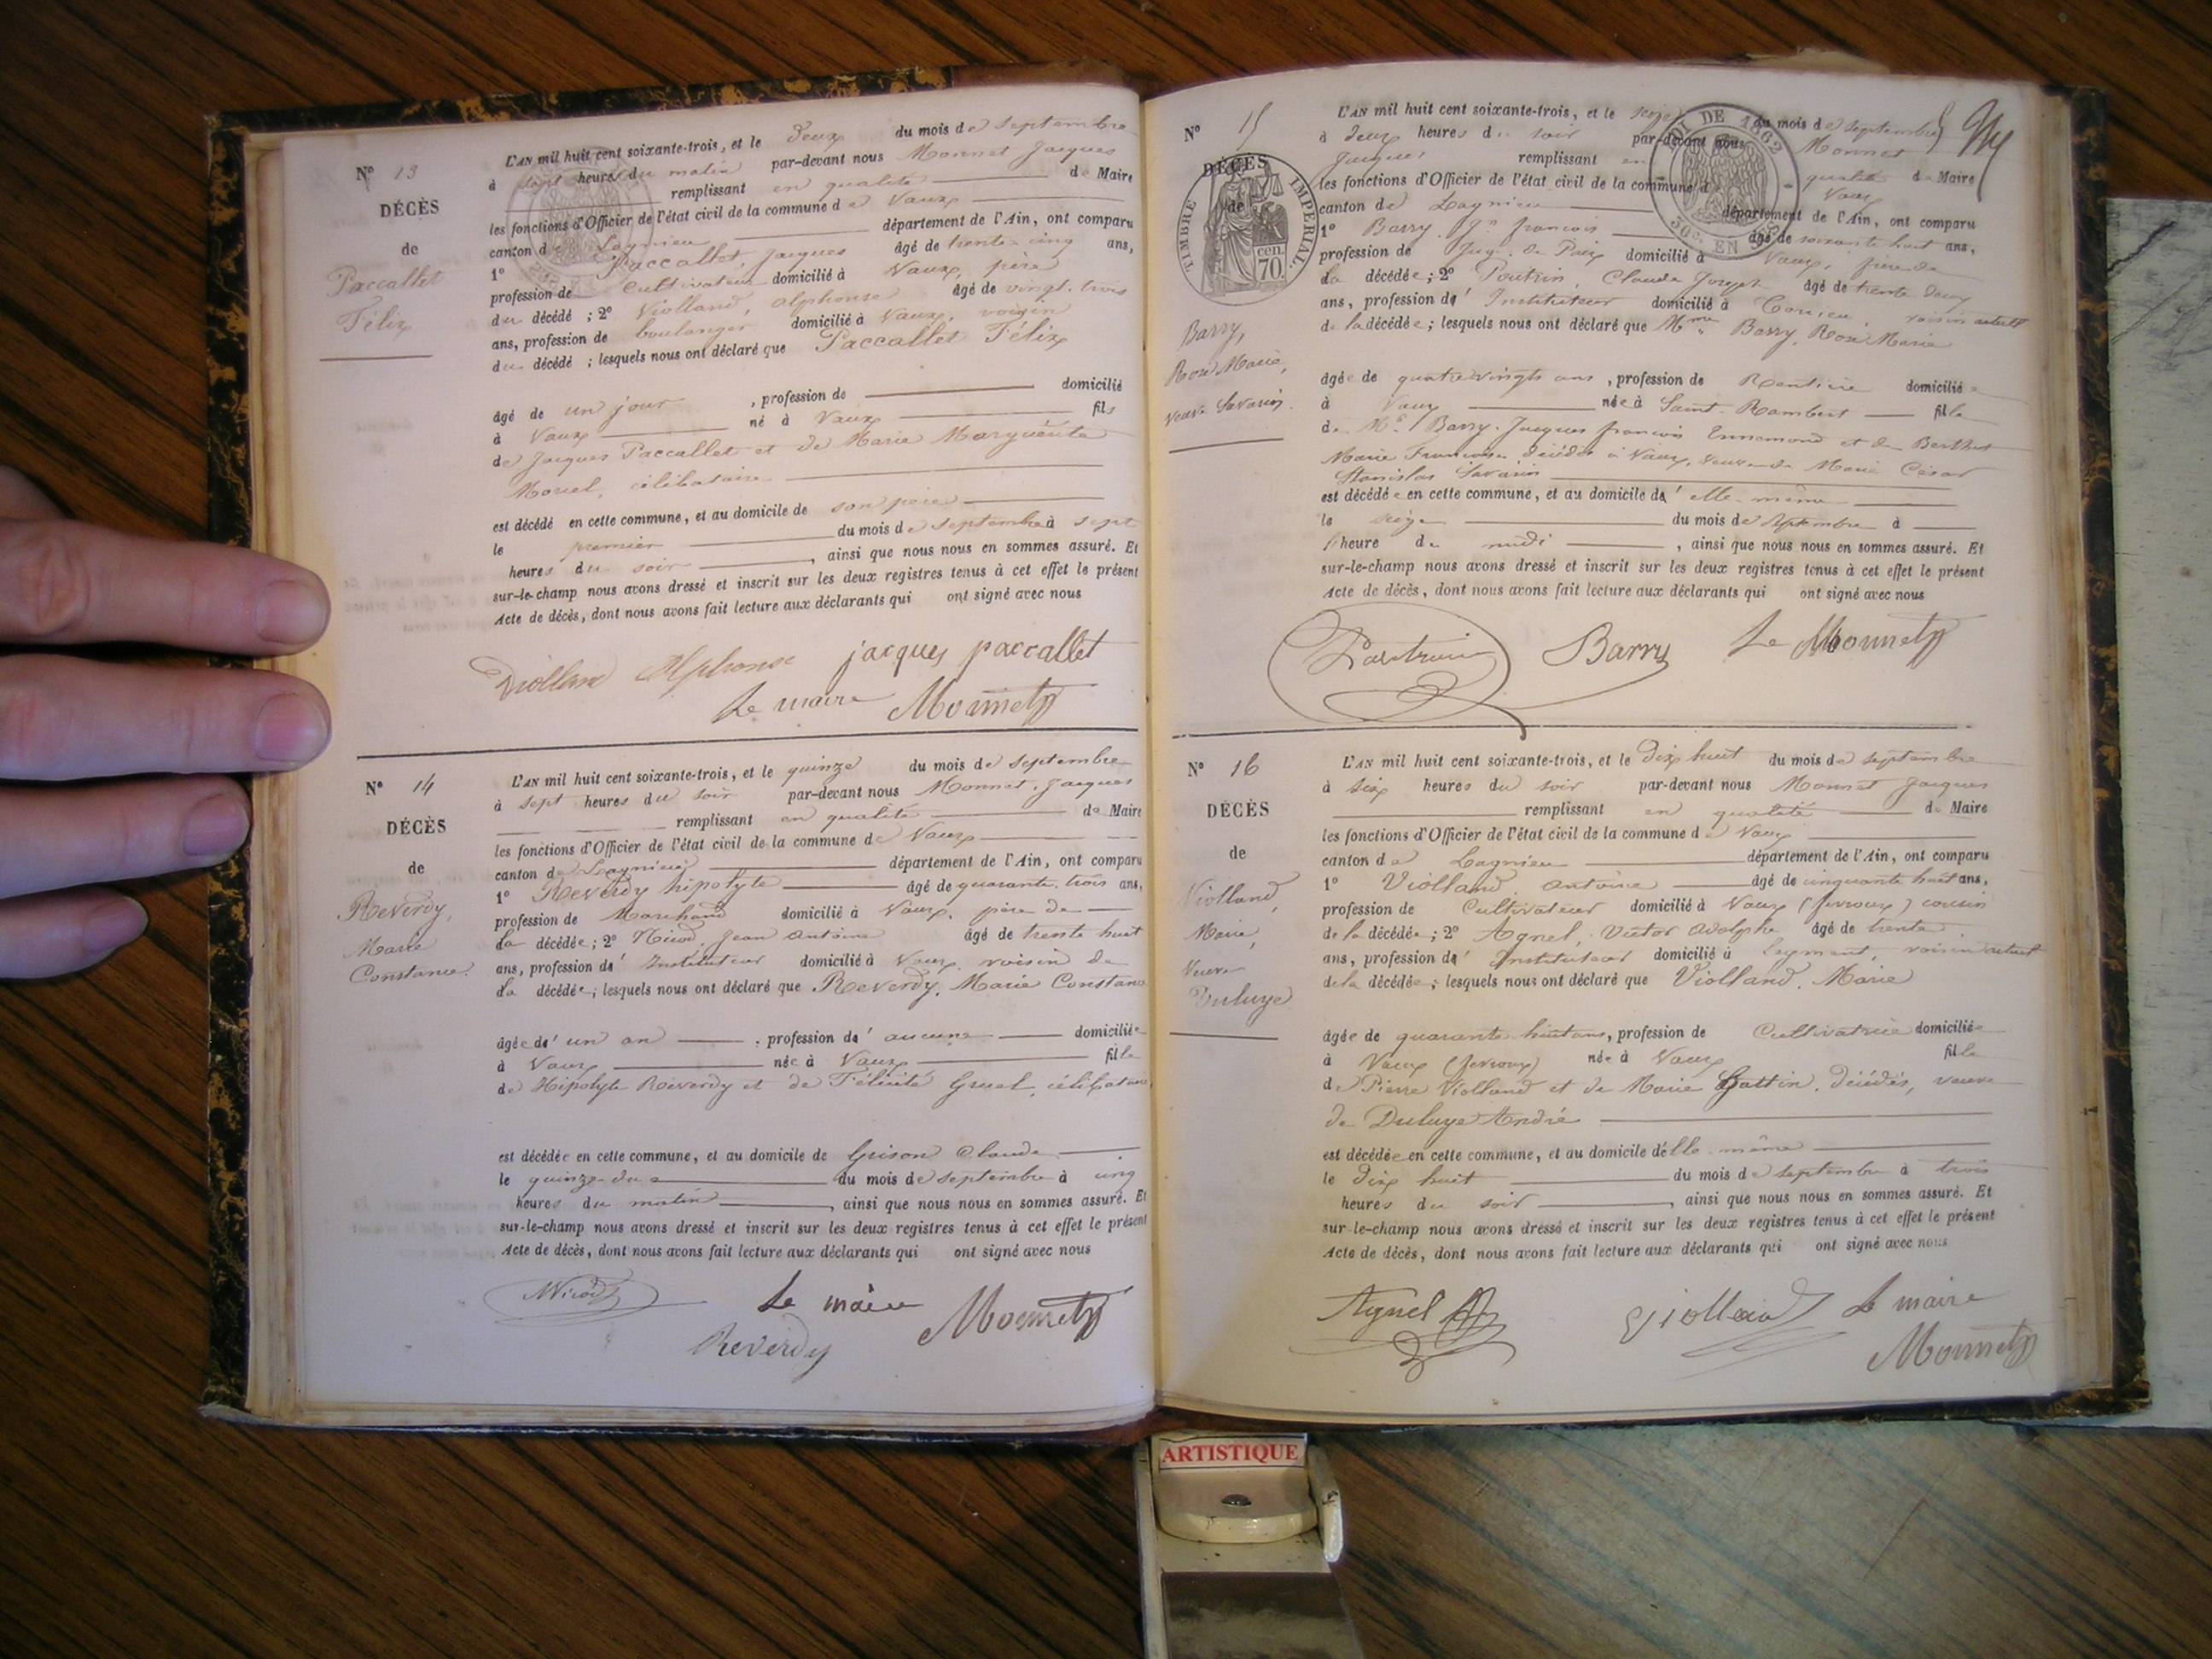 N° 13
DÉCÈS
de
Paccallet
Félix
L'AN mil huit cent soixante-trois, et le deux du mois de septembre
à sept heures du matin par-devant nous Monnet Jacques
remplissant en qualité de Maire
les fonctions d'Officier de l'état civil de la commune de Vaux
canton de Lagnieu département de l'Ain, ont comparu
1° Paccallet, Jacques âgé de trente cinq ans,
profession de Cultivateur domicilié à Vaux, père
du décédé ; 2° Violland, alphonse âgé de vingt-trois
ans, profession de boulanger domicilié à Vaux, voisin
du décédé ; lesquels nous ont déclaré que Paccallet Félix
âgé de un jour , profession de domicilié
à Vaux né à Vaux fils
de Jacques Paccallet et de Marie Marguerite
Morel, célibataire
est décédé en cette commune, et au domicile de son père
le premier du mois de septembre à sept
heures du soir , ainsi que nous nous en sommes assuré. Et
sur-le-champ nous avons dressé et inscrit sur les deux registres tenus à cet effet le présent
Acte de décès, dont nous avons fait lecture aux déclarants qui ont signé avec nous
Violland Alphonse jacques paccallet
Le maire Monnet
N° 14
DÉCÈS
de
Reverdy,
Marie
Constance.
L'AN mil huit cent soixante-trois, et le quinze du mois de septembre
à sept heures du soir par-devant nous Monnet, Jacques
remplissant en qualité de Maire
les fonctions d'Officier de l'état civil de la commune de Vaux
canton de Lagnieu département de l'Ain, ont comparu
1° Reverdy hipolyte âgé de quarante-trois ans,
profession de Marchand domicilié à Vaux, père de
la décédée ; 2° Nicod, Jean Antoine âgé de trente huit
ans, profession d' Instituteur domicilié à Vaux, voisin de
la décédée ; lesquels nous ont déclaré que Reverdy, Marie Constance
âgée d' un an , profession d' aucune domiciliée
à Vaux née à Vaux fille
de Hipolyte Reverdy et de Félicité Gruel, célibataire
est décédée en cette commune, et au domicile de Grison Claude
le quinze du du mois de septembre à cinq
heures du matin , ainsi que nous nous en sommes assuré. Et
sur-le-champ nous avons dressé et inscrit sur les deux registres tenus à cet effet le présent
Acte de décès, dont nous avons fait lecture aux déclarants qui ont signé avec nous
Nicod Le maire Monnet
Reverdy
N° 15
DÉCÈS
de
TIMBRE IMPERIAL
70 cen.
Barry,
Rose Marie,
veuve Savarin.
L'AN mil huit cent soixante-trois, et le seize du mois de septembre
à deux heures du soir par-devant nous Monnet
Jacques remplissant en qualité de Maire
les fonctions d'Officier de l'état civil de la commune de Vaux
canton de Lagnieu département de l'Ain, ont comparu
1° Barry, françois âgé de soixante huit ans,
profession de Juge de Paix domicilié à Vaux, frère de
la décédée ; 2° Poutrin, Claude Joseph âgé de trente deux
ans, profession d' Instituteur domicilié à voisin actuel
de la décédée ; lesquels nous ont déclaré que Mme Barry, Rose Marie
âgée de quatrevingts ans , profession de Rentière domiciliée
à Vaux née à Saint-Rambert fille
de Mr Barry Jacques françois Ennemond et de Berthet
Marie Françoise décédés à Vaux, veuve de Marie César
Stanislas Savarin
est décédée en cette commune, et au domicile d' elle-même
le seize du mois de septembre à
heure de midi , ainsi que nous nous en sommes assuré. Et
sur-le-champ nous avons dressé et inscrit sur les deux registres tenus à cet effet le présent
Acte de décès, dont nous avons fait lecture aux déclarants qui ont signé avec nous
Barry Le Monnet
N° 16
DÉCÈS
de
Violland,
Marie,
Veuve
Duluye
L'AN mil huit cent soixante-trois, et le Dix huit du mois de septembre
à six heures du soir par-devant nous Monnet Jacques
remplissant en qualité de Maire
les fonctions d'Officier de l'état civil de la commune de Vaux
canton de Lagnieu département de l'Ain, ont comparu
1° Violland, Antoine âgé de cinquante huit ans,
profession de Cultivateur domicilié à Vaux (fevroux) cousin
de la décédée ; 2° Agnel, Victor Adolphe âgé de trente
ans, profession d' Instituteur domicilié à Leyment, voisin actuel
de la décédée ; lesquels nous ont déclaré que Violland, Marie
âgée de quarante huit ans, profession de Cultivatrice domiciliée
à Vaux (fevroux) née à Vaux fille
de Pierre Violland et de Marie Gattin, décédés, veuve
de Duluye André
est décédée en cette commune, et au domicile d'elle-même
le Dix huit du mois de septembre à trois
heures du soir , ainsi que nous nous en sommes assuré. Et
sur-le-champ nous avons dressé et inscrit sur les deux registres tenus à cet effet le présent
Acte de décès, dont nous avons fait lecture aux déclarants qui ont signé avec nous
Agnel Violland Le maire
Monnet
ARTISTIQUE